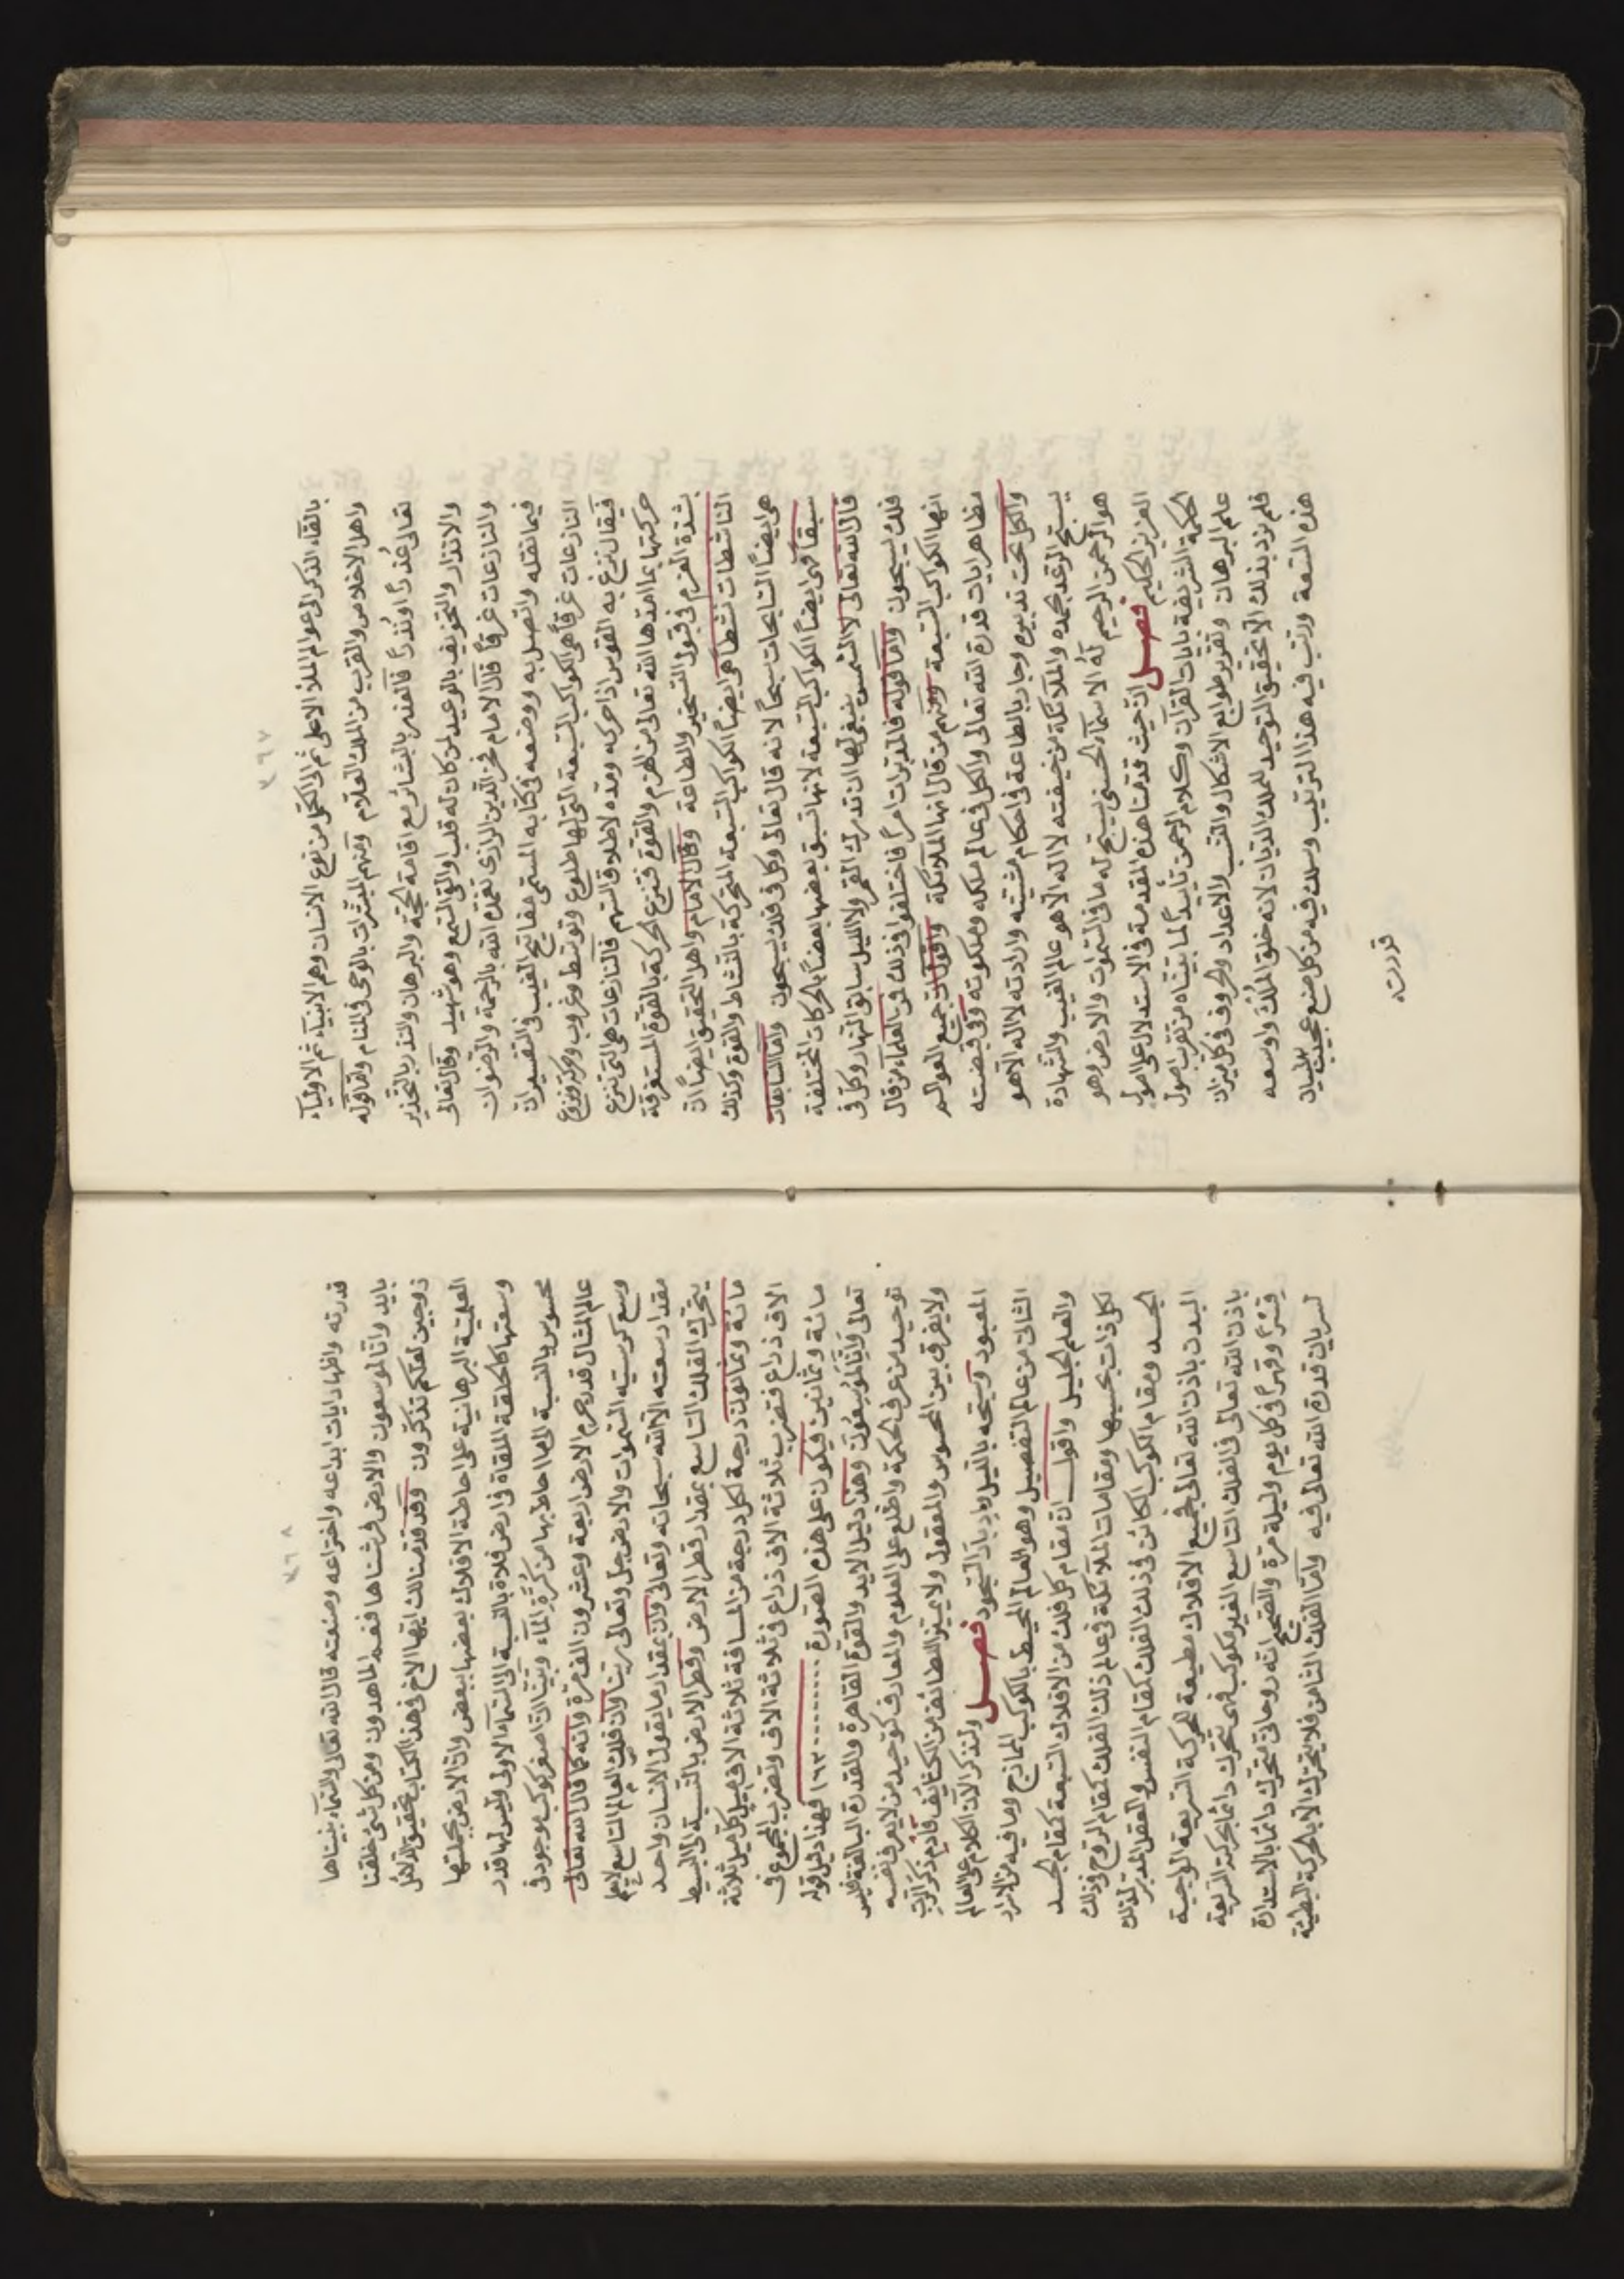 ٧٦٧
بالقاء الذكر الى عوالم الملأ الاعلى ثم الى الكمل من نوع الانسان وهم الانبياء ثم الاولياء
واهل الاخلاص والقرب من الملك العلام ومنهم المبشرات بالوحى فى المنام واما قوله
تعالى عُذرًا او نُذرًا فالعذر بالبشائر مع اقامة الحجة والبرهان والنذر بالتحذير
والانذار والتخويف بالوعيد لمن كان له قلب والقى السمع وهو شهيد وقال تعالى
والنازعات غرقًا قال الامام فخر الدين الرازى تغمده الله بالرحمة والرضوان
فيما نقله واتصل به ووضعه فى كتابه المسمى مفاتيح الغيب فى التفسير ان
النازعات غرقًا هى الكواكب السبعة التى لها طلوع وتوسط وغروب وحركة ونزوع
فيقال نزع به القوس اذا حركه ومده لاطلاق السهم فالنازعات هى التى تنزع
حركتها بما امدها الله تعالى من العزم والقوة فتنزع الحركة بالقوة المستغرقة
بشدة العزم فى قبول التسخير والطاعة وقال الامام واهل التحقيق ايضًا ان
الناشطات نشطا هى ايضًا الكواكب السبعة المتحركة بالنشاط والقوة وكذلك
هى ايضًا السابحات سبحًا لانه قال تعالى وكل فى فلك يسبحون واما السابقات
سبقًا فهى ايضًا الكواكب السبعة لانها تسبق بعضها بعضًا بالحركات المختلفة
قال الله تعالى لا الشمس ينبغى لها ان تدرك القمر ولا الليل سابق النهار وكل فى
فلك يسبحون واما قوله فالمدبرات امرًا فاختلفوا فى ذلك فمن العلماء من قال
انها الكواكب السبعة ومنهم من قال انها الملائكة واقول ان جميع العوالم
مظاهر ايات قدرة الله تعالى والكل فى عالم ملكه وملكوته وفى قبضته
والكل تحت تدبيره وجار بالطاعة فى احكام مشيئته وارادته لا اله الا هو
يسبح الرعد بحمده والملائكة من خيفته لا اله الا هو عالم الغيب والشهادة
هو الرحمن الرحيم له الاسماء الحسنى يسبح له ما فى السموات والارض وهو
العزيز الحكيم فصل ان حيث قدمنا هذه المقدمة فى الاستدلال على اصول
الحكمة الشريفة بايات القرآن وكلام الرحمن تأييدًا لما بيناه من تقريب اصول
علم البرهان وتقرير طوابع الاشكال والنسب والاعداد والحروف فى كل ميزان
فلم نرد بذلك الا تحقيق التوحيد للملك الديان لانه خلق الملك واوسعه
هذه السعة ورتب فيه هذا الترتيب وسلك فيه من كل صنع عجيب لبيان
قدرته
٧٦٨
قدرته واظهار ايات ابداعه واختراعه وصنعته قال الله تعالى والسماء بنيناها
بايد وانا لموسعون والارض فرشناها فنعم الماهدون ومن كل شئ خلقنا
زوجين لعلكم تذكرون وقد قدمنا لك ايها الاخ فى هذا الكتاب تحقيق الدلائل
العلمية البرهانية على احاطة الافلاك بعضها ببعض وان الارض بجملتها
وسعتها كالحلقة الملقاة فى ارض فلاة بالنسبة الى السماء الاولى وليس لها قدر
محسوس بالنسبة الى ما احاط بها من كُرة الماء وبينا ان اصغر كوكب موجود فى
عالم المثال قدر جرم الارض اربعة وعشرون الف مرة وانه كما قال الله تعالى
وسع كرسيه السموات والارض جل وتعالى ربنا وان فلك العالم التاسع لا يعلم
مقدار سعته الا الله سبحانه وتعالى وان بمقدار ما يقول الانسان واحد
يتحرك الفلك التاسع بمقدار قطر الارض وقطر الارض بالنسبة الى البسيط
مائة وثمانون درجة لكل درجة من المسافة ثلاثة الاف ميل كل ميل ثلاثة
الاف ذراع فتضرب ثلاثة الاف ذراع فى ثلاثة الاف وتضرب المجموع فى
مائة وثمانين فيكون على هذه الصورة ١٦٢٠٠٠٠٠٠٠ فهذا دليل قوله
تعالى وَاِنّا لَمُوسِعُونَ وهذا دليل الايد والقوة القاهرة والقدرة البالغة فليس
توحيد من عرف الحكمة واطلع على العلوم والمعارف كتوحيد من لا يعرف نفسه
ولا يفرق بين المحسوس والمعقول ولا يميز اللطائف من الكثائف فأدم ذكر الرب
المعبود وسبحه بالليل وادبار السجود فصل ولنذكر الآن الكلام على العالم
الثانى من عالم التفصيل وهو العالم المحيط بالكوكب الممازج وما فيه من الاسرار
والعلم الجليل واقول ان مقام كل فلك من الافلاك السبعة كمقام الجسد
لكل ذات بحسبها ومقامات الملائكة فى عالم ذلك الفلك كمقام الروح فى ذلك
الجسد ومقام الكوكب الكائن فى ذلك الفلك كمقام النفس والعقل المدبر لذلك
البدن باذن الله تعالى فجميع الافلاك مطيعة للحركة السريعة الواجبة
باذن الله تعالى فى الفلك التاسع الغير مكوكب فهى تتحرك دائما بحركته السريعة
قسرًا وقهرًا فى كل يوم وليلة مرة والصحيح انه روحانى متحرك دائما بالاستدارة
لسريان قدرة الله تعالى فيه واما الفلك الثامن فلا يتحرك الا بالحركة البطيئة